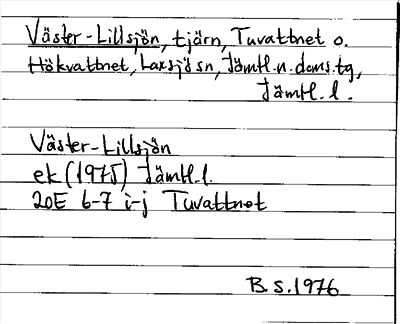 Väster-Lillsjön, tjärn, Tuvattnet o.
Hökvattnet, Laxsjö sn, Jämtl.n.doms.tg,
Jämtl.l.
Väster-Lillsjön
ek (1975) Jämtl.l.
20E 6-7 i-j Tuvattnet
B.S.1976